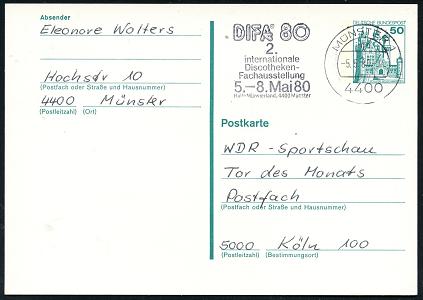 Absender
Eleonore Wolters
Hochstr 10
(Postfach oder Straße und Hausnummer)
4400 Münster
(Postleitzahl) (Ort)
DIFA 80
2.
internationale
Discotheken-
Fachausstellung
5.–8. Mai 80
Halle Münsterland, 4400 Münster
MÜNSTER
4400
DEUTSCHE BUNDESPOST
50
Postkarte
WDR - Sportschau
Tor des Monats
Postfach
(Postfach oder Straße und Hausnummer)
5000 Köln 100
(Postleitzahl) (Bestimmungsort)